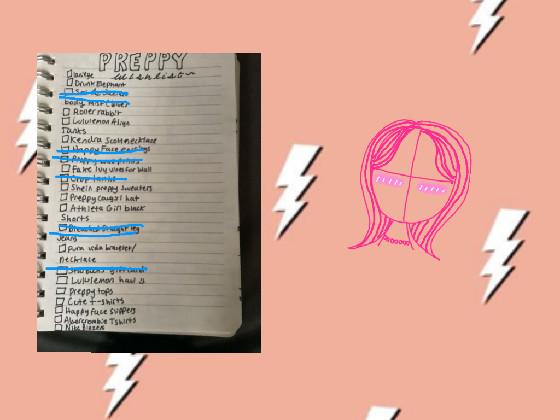 PREPPY
wishlist
Drunk Elephant
body mist (
Roller rabbit
Lululemon Align
Tanks
Kendra Scott necklace
Happy Face earrings
Preppy
Fake Ivy vines for wall
Crop tanks
Shein preppy sweaters
Preppy cowgirl hat
Athleta Girl black
Shorts
straight leg
Jeans
Pura vida bracelet/
necklace
Starbucks gift card
Lululemon haul :)
Preppy tops
Cute t-shirts
Happy Face slippers
Abercrombie Tshirts
Nike blazers